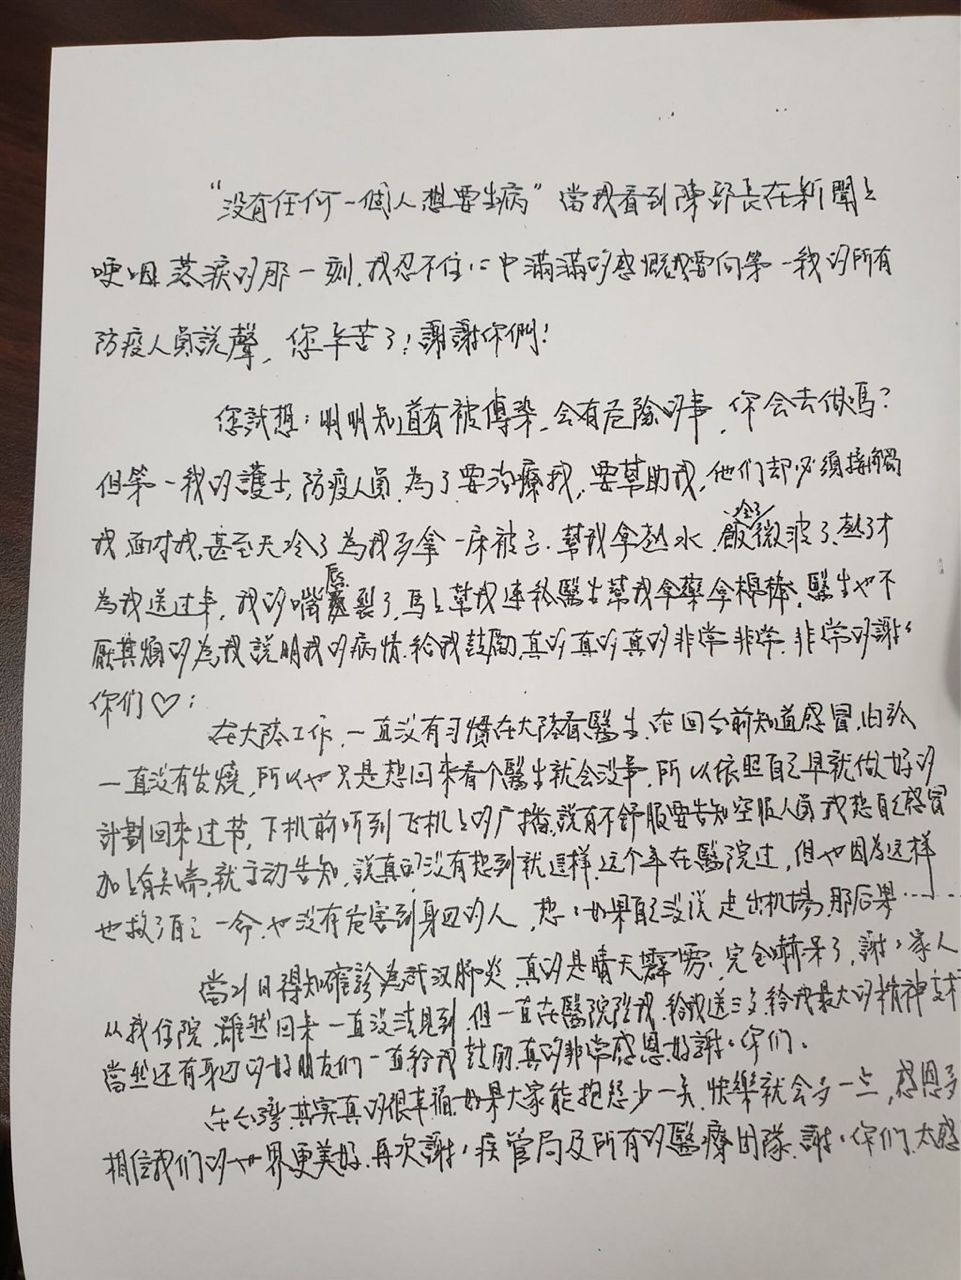 “没有任何一個人想要生病”當我看到陳部長在新聞上
哽咽落淚的那一刻,我忍不住心中滿滿的感慨我要向第一我的所有
防疫人員說聲,您辛苦了!謝謝你們!
您試想:明明知道有被傳染,会有危險的事,你会去做嗎?
但第一我的護士,防疫人員,为了要治療我,要幫助我,他们却必須接觸
我,面对我,甚至天冷了為我多拿一床被子,幫我拿熱水,飯冷了微波了,熱了才
為我送过来,我的嘴唇裂了,馬上幫我連絡醫生幫我拿藥拿棉棒,醫生也不
厭其煩的為我說明我的病情.給我鼓励,真的真的真的非常非常.非常的謝謝
你们♡:
在大陸工作,一直没有习慣在大陸看醫生,在回台前知道感冒,由於
一直没有发燒,所以也只是想回來看个醫生就会没事,所以依照自己早就做好的
計劃回来过节,下机前听到飞机上的广播,說有不舒服要告知空服人員我想自己感冒
加上有关喘,就主动告知,說真的没有想到就這样,这个年在醫院过,但也因為这样
也救了自己一命,也没有危害到身边的人,想想如果自己没说走出机場,那后果……
當21日得知確診為武汉肺炎,真的是晴天霹靂,完全嚇呆了,謝謝家人
从我住院,雖然回来一直没法見到,但一直在醫院陪我.給我送.給我最大的精神支
當然还有身边的好朋友们一直給我鼓励,真的非常感恩,好謝謝你们.
在台灣,其实真的很幸福.如果大家能抱怨少一点,快樂就会多一点,感恩多
相信我们的世界更美好,再次謝謝疾管局及所有的醫療团隊.謝謝你们,太感